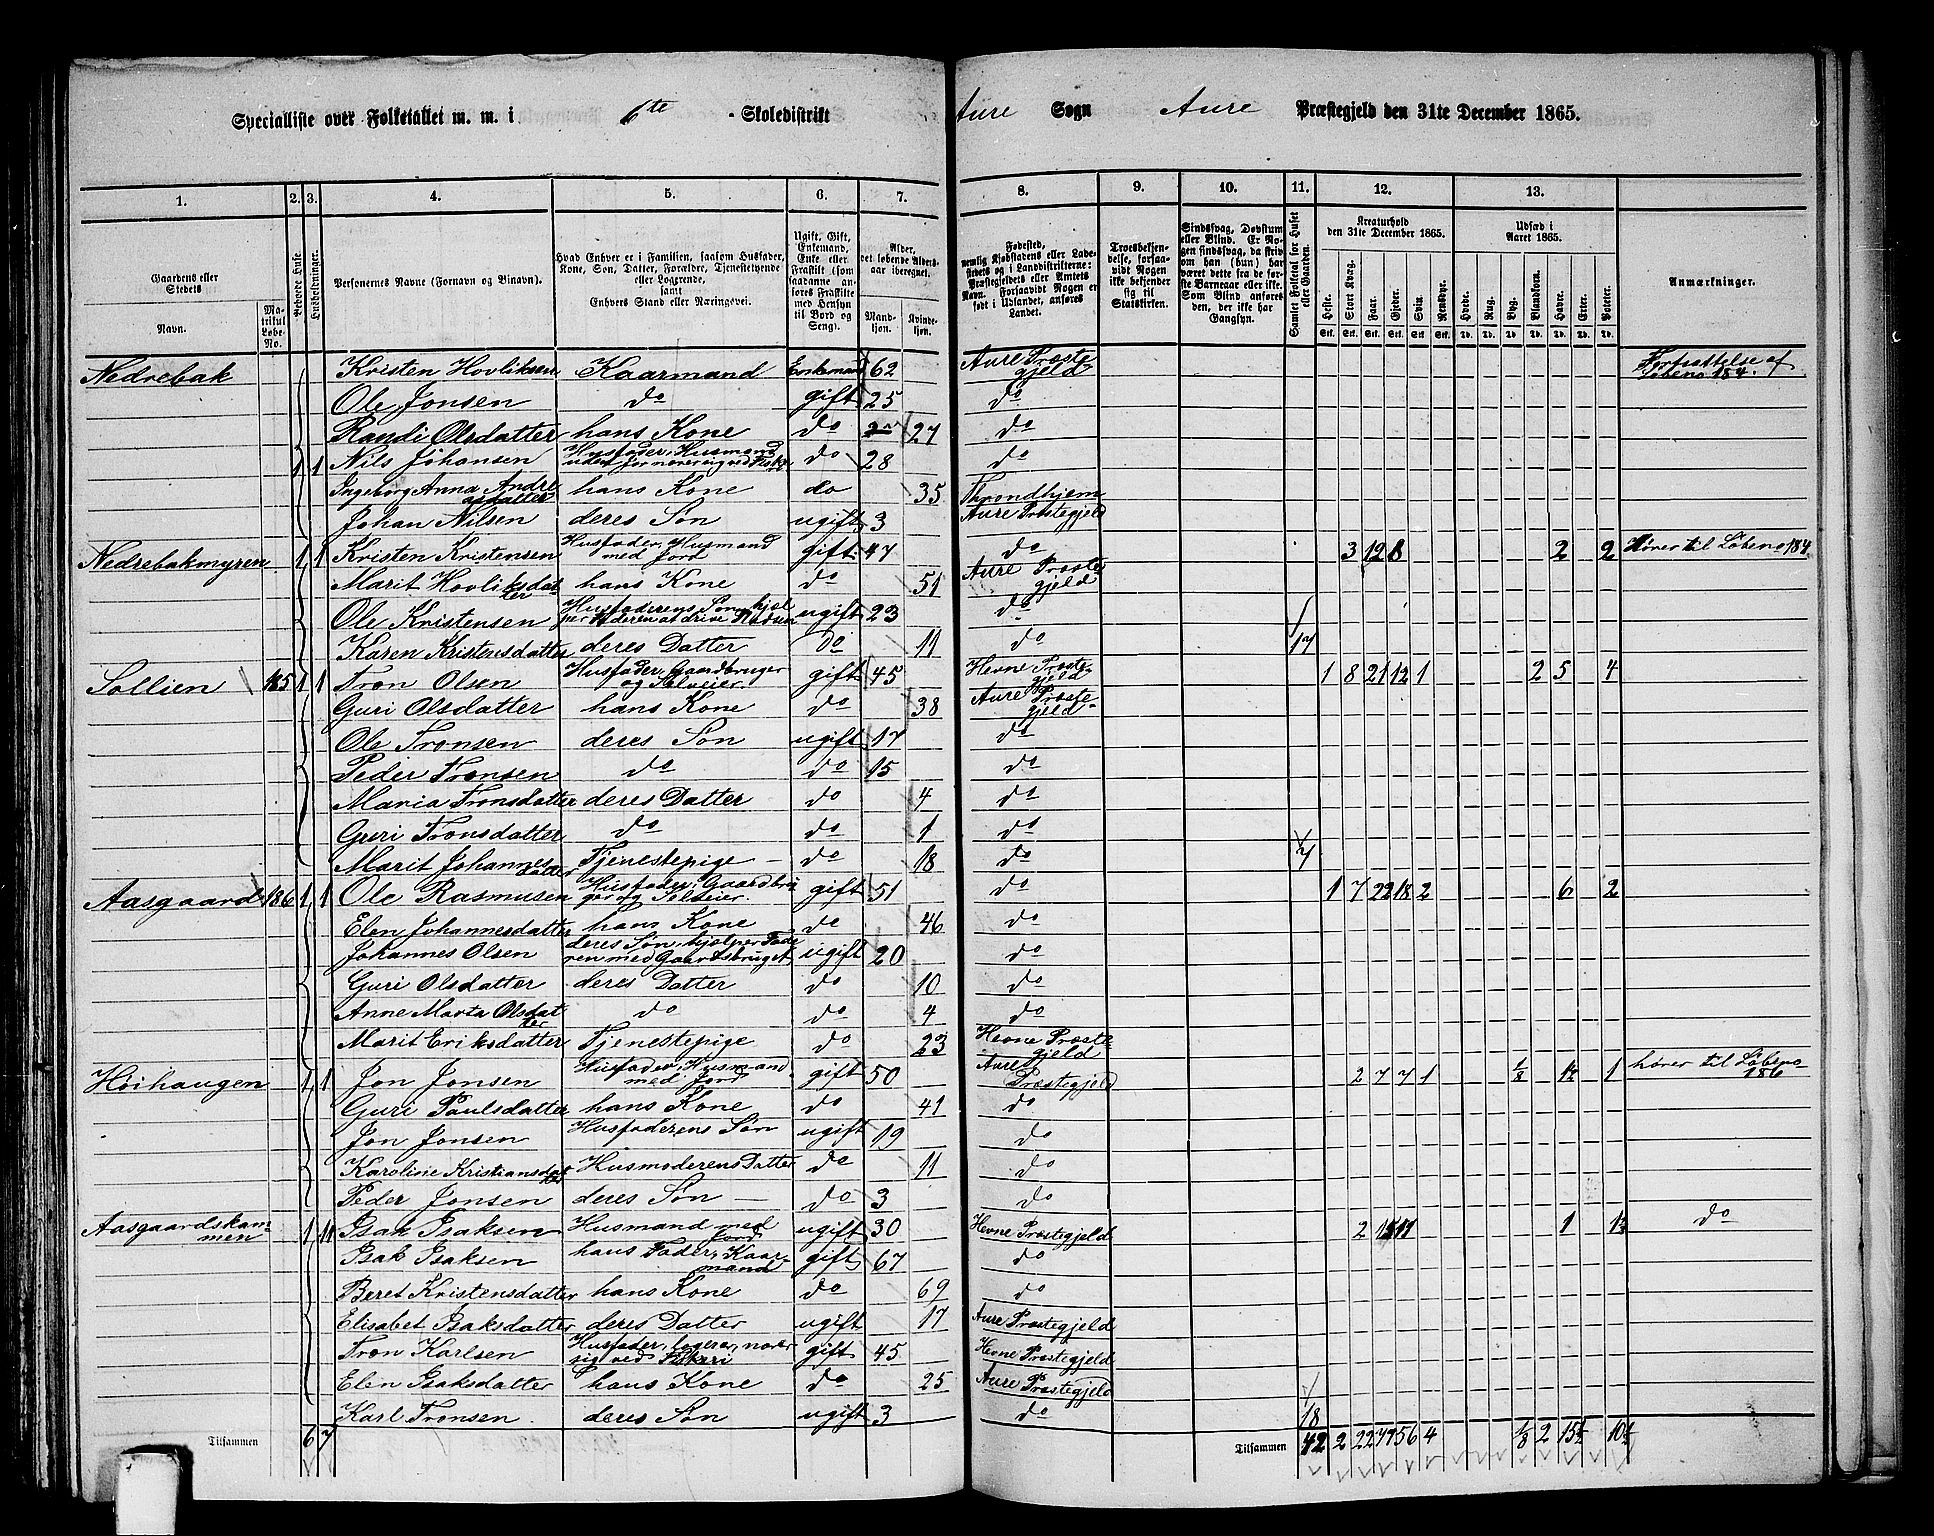 Specialliste over Folketallet m. m. i 6te Skoledistrikt Aure Sogn Aure Præstegjeld den 31te December 1865.
1. 2. 3. 4. 5. 6. 7. 8. 9. 10. 11. 12. 13.
Gaardens eller Stedets Navn. Matrikul Løbe-No. Beboede Huse. Huusholdninger. Personernes Navne (Fornavn og Tilnavn). Hvad Enhver er i Familien, saasom Husfader, Kone, Søn, Datter, Forældre, Tjenestetyende eller Logerende, samt Enhvers Stand eller Næringsvei. Ugift, Gift, Enkemand, Enke eller Fraskilt (som saadanne anføres Fraskilte med Hensyn til Bord og Seng). Alder, det løbende Aldersaar iberegnet. Mandkjøn. Kvindekjøn. Fødested, Troesbekjendelse, forsaavidt Nogen ikke bekjender sig til Statskirken. Samlet Folketal for Huset eller Gaarden. Kreaturhold den 31te December 1865. Udsæd i Aaret 1865. Anmærkninger.
Heste. Stort Kvæg. Faar. Gjeder. Sviin. Rensdyr. Hvede. Rug. Byg. Blandkorn. Havre. Erter. Poteter.
Nedrebak Kristen Hovliksen Kaarmand Enkemand 62 Aure Præstegjeld Fortsættelse af Løbeno 184.
Ole Jonsen do gift 25 do
Randi Olsdatter hans Kone do 27 do
1 1 Nils Johansen Husfader, Husmand uden Jor nærer sig ved Fiskr do 28 do
Ingeborg Anna Andreasdatter hans Kone do 35 Throndhjem
Johan Nilsen deres Søn ugift 3 Aure Præstegjeld
Nedrebakmyren 1 1 Kristen Kristensen Husfader, Husmand med Jord gift 47 do 3 12 8 2 2 Hører til Løbeno 184.
Marit Hovliksdatter hans Kone do 51 Aure Præstegjeld
Ole Kristensen Husfaderens Søn, hjælper Faderen at drive Pladsen ugift 23 do
Karen Kristensdatter deres Datter do 11 do 17
Sollien 185 1 1 Tron Olsen Husfader, Gaardbruger og Selveier gift 45 Hevne Præstegjeld 1 8 21 12 1 2 5 4
Guri Olsdatter hans Kone do 38 Aure Præstegjeld
Ole Tronsen deres Søn ugift 17 do
Peder Tronsen do do 15 do
Maria Tronsdatter deres Datter do 4 do
Guri Tronsdatter do do 1 do
Marit Johannesdatter Tjenestepige do 18 do 7
Aasgaard 186 1 1 Ole Rasmusen Husfader, Gaardbruger og Selveier. gift 51 do 1 7 22 18 2 6 2
Elen Johannesdatter hans Kone do 46 do
Johannes Olsen deres Søn, hjelper Faderen med Gaardsbruget ugift 20 do
Guri Olsdatter deres Datter do 10 do
Anne Marta Olsdatter do do 4 do
Marit Eriksdatter Tjenestepige do 23 Hevne Præstegjeld
Høihaugen 1 1 Jon Jonsen Husfader, Husmand med Jord gift 50 Aure Præstegjeld 2 7 7 1 1/8 1 1/2 1 hører til Løbeno 186
Guri Paulsdatter hans Kone do 41 do
Jon Jonsen Husfaderens Søn ugift 19 do
Karoline Kristiansdatter Husmoderens Datter do 11 do
Peder Jonsen deres Søn do 3 do
Aasgaardskammen 1 11 Isak Isaksen Husmand med Jord ugift 30 Hevne Præstegjeld 2 1 do
Isak Isaksen hans Fader, Kaarmand gift 67 do
Beret Kristensdatter hans Kone do 69 do
Elisabet Isaksdatter deres Datter ugift 17 Aure Præstegjeld
Tron Karlsen Husfader, logerer, nærer sig ved Fiskeri gift 45 Hevne Præstegjeld
Elen Isaksdatter hans Kone do 25 Aure Præstegjeld
Karl Tronsen deres Søn ugift 3 do 18
Tilsammen 6 7 Tilsammen 42 2 22 77 56 4 1/8 2 15 1/2 10 1/2